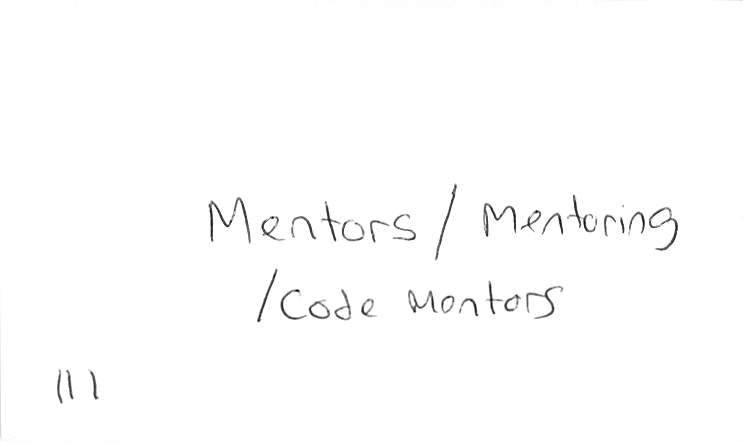 Mentors / Mentoring
/Code Montors
III